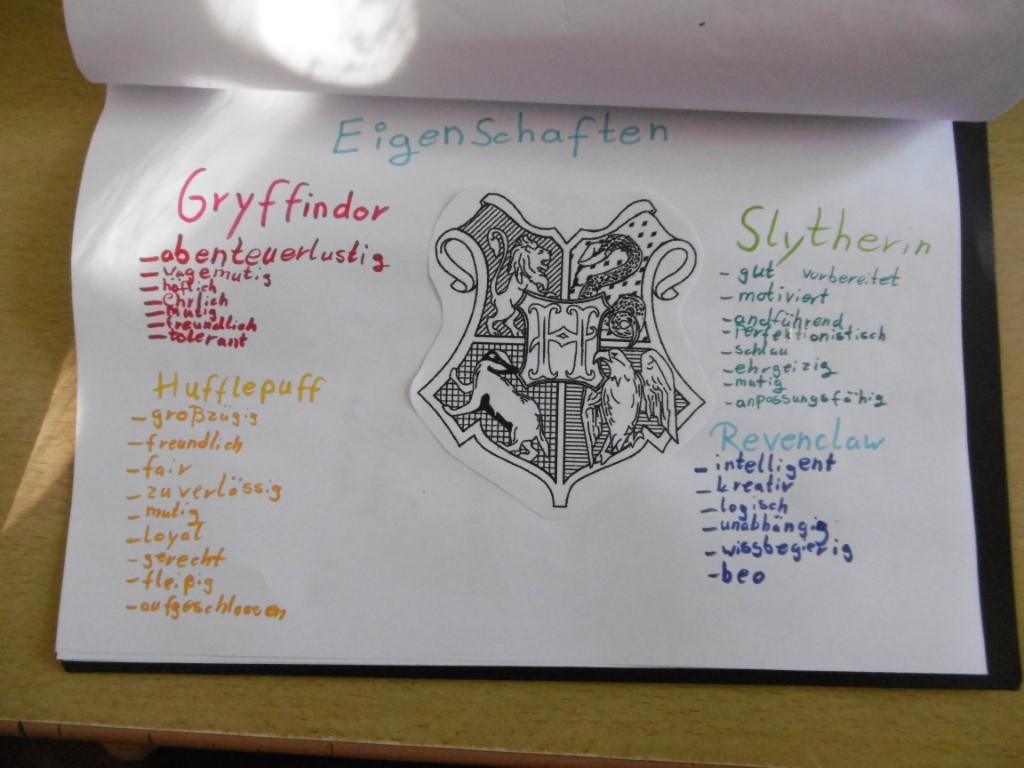 EigenSchaften
Gryffindor
- abenteuerlustig
- wagemutig
- höflich
- Ehrlich
- mutig
- freundlich
- tolerant
Hufflepuff
- großzügig
- freundlich
- fair
- zuverlässig
- mutig
- loyal
- gerecht
- fleißig
- aufgeschlossen
H
Slytherin
- gut vorbereitet
- motiviert
- anführend
- Perfektionistisch
- schlau
- ehrgeizig
- mutig
- anpassungsfähig
Revenclaw
- intelligent
- kreativ
- logisch
- unabhängig
- wissbegierig
- beo